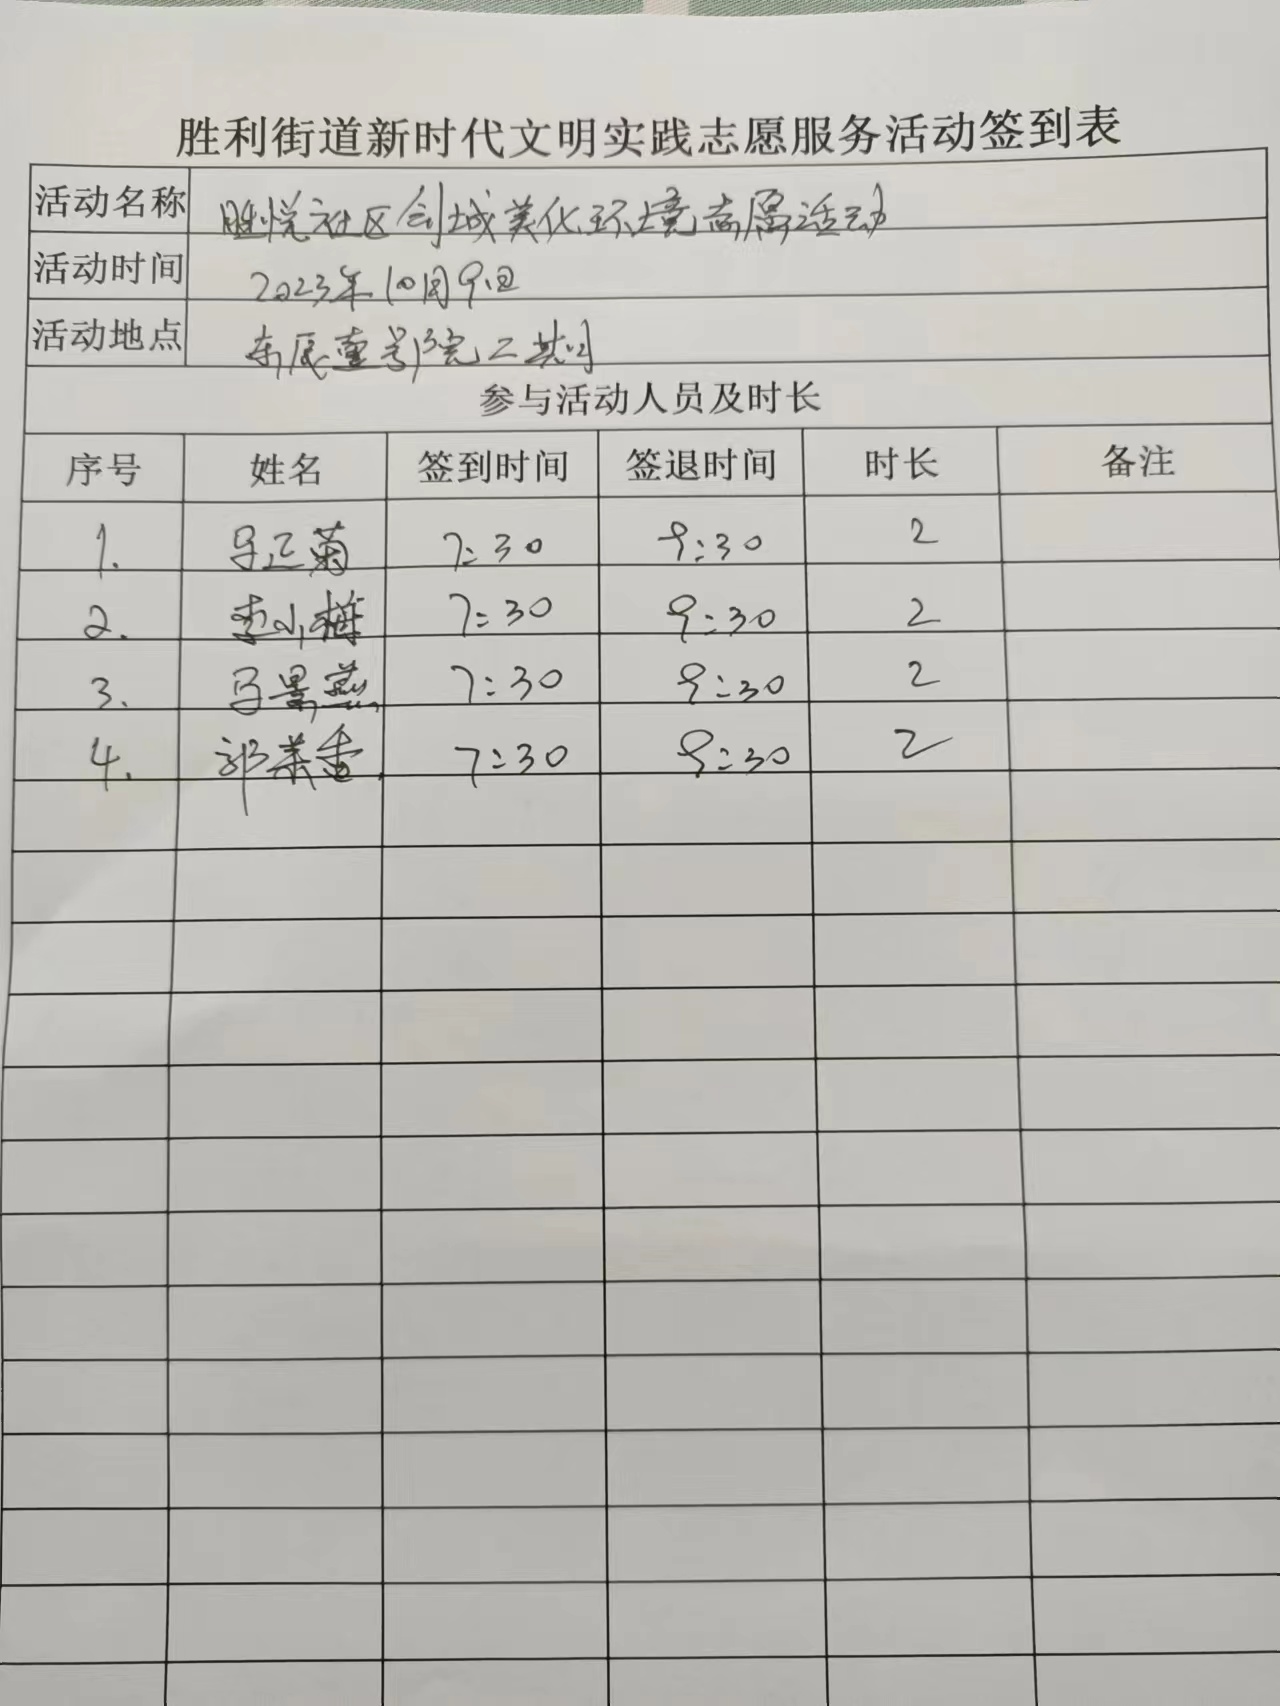 胜利街道新时代文明实践志愿服务活动签到表
活动名称 胜悦社区创城美化环境志愿活动
活动时间 2023年10月9日
活动地点 东辰壹号院二期
参与活动人员及时长
序号 姓名 签到时间 签退时间 时长 备注
1. 马正菊 7:30 9:30 2
2. 李小梅 7:30 9:30 2
3. 马景燕 7:30 9:30 2
4. 郭菜香 7:30 9:30 2